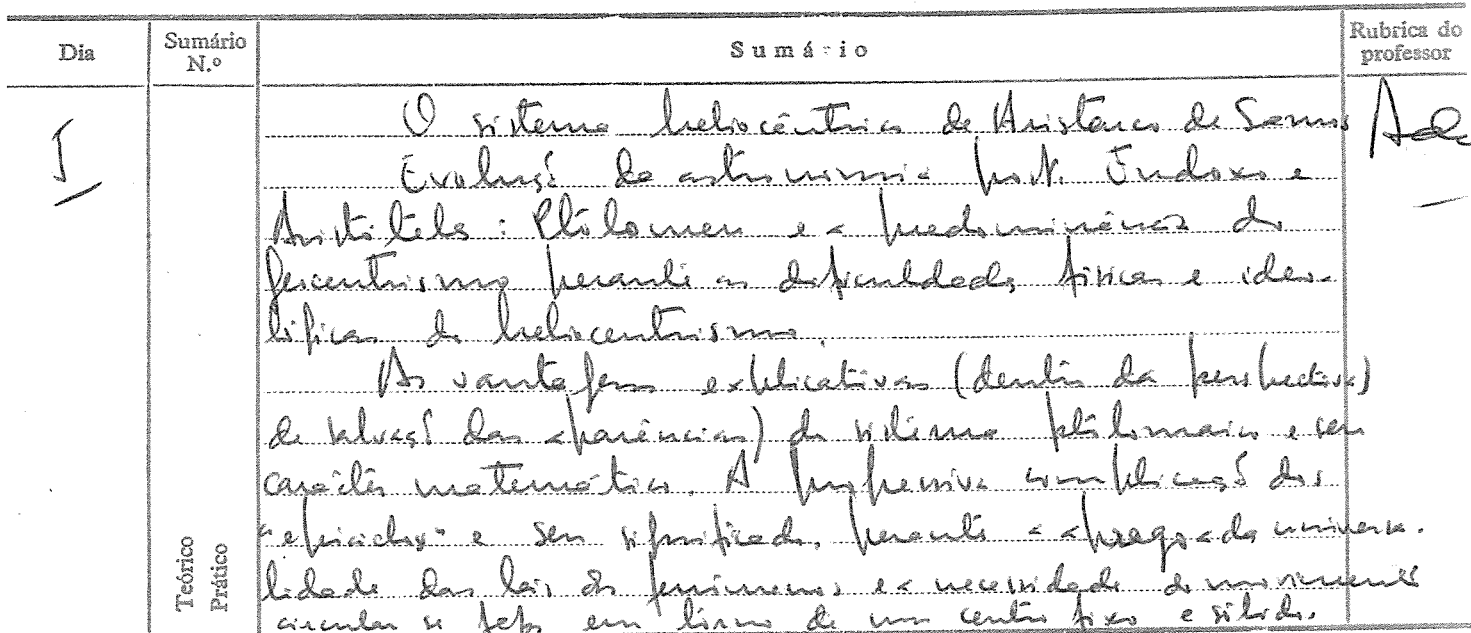 Dia
Sumário N.º
Sumário
Rubrica do professor
I
O sistema heliocêntrico de Aristarco de Samos
Evolução da astronomia post. Eudoxo e
Aristóteles: Ptolomeu e a predominância do
geocentrismo perante as dificuldades físicas e ideo-
lógicas do heliocentrismo.
As vantagens explicativas (dentro da perspectiva)
de salvação das aparências) do sistema ptolomaico e seu
carácter matemático. A progressiva complicação dos
"epiciclos" e seu significado, perante a apregoada universa-
lidade das leis dos fenómenos e a necessidade do movimento
circular se fazer em torno de um centro fixo e sólido.
Teórico
Prático